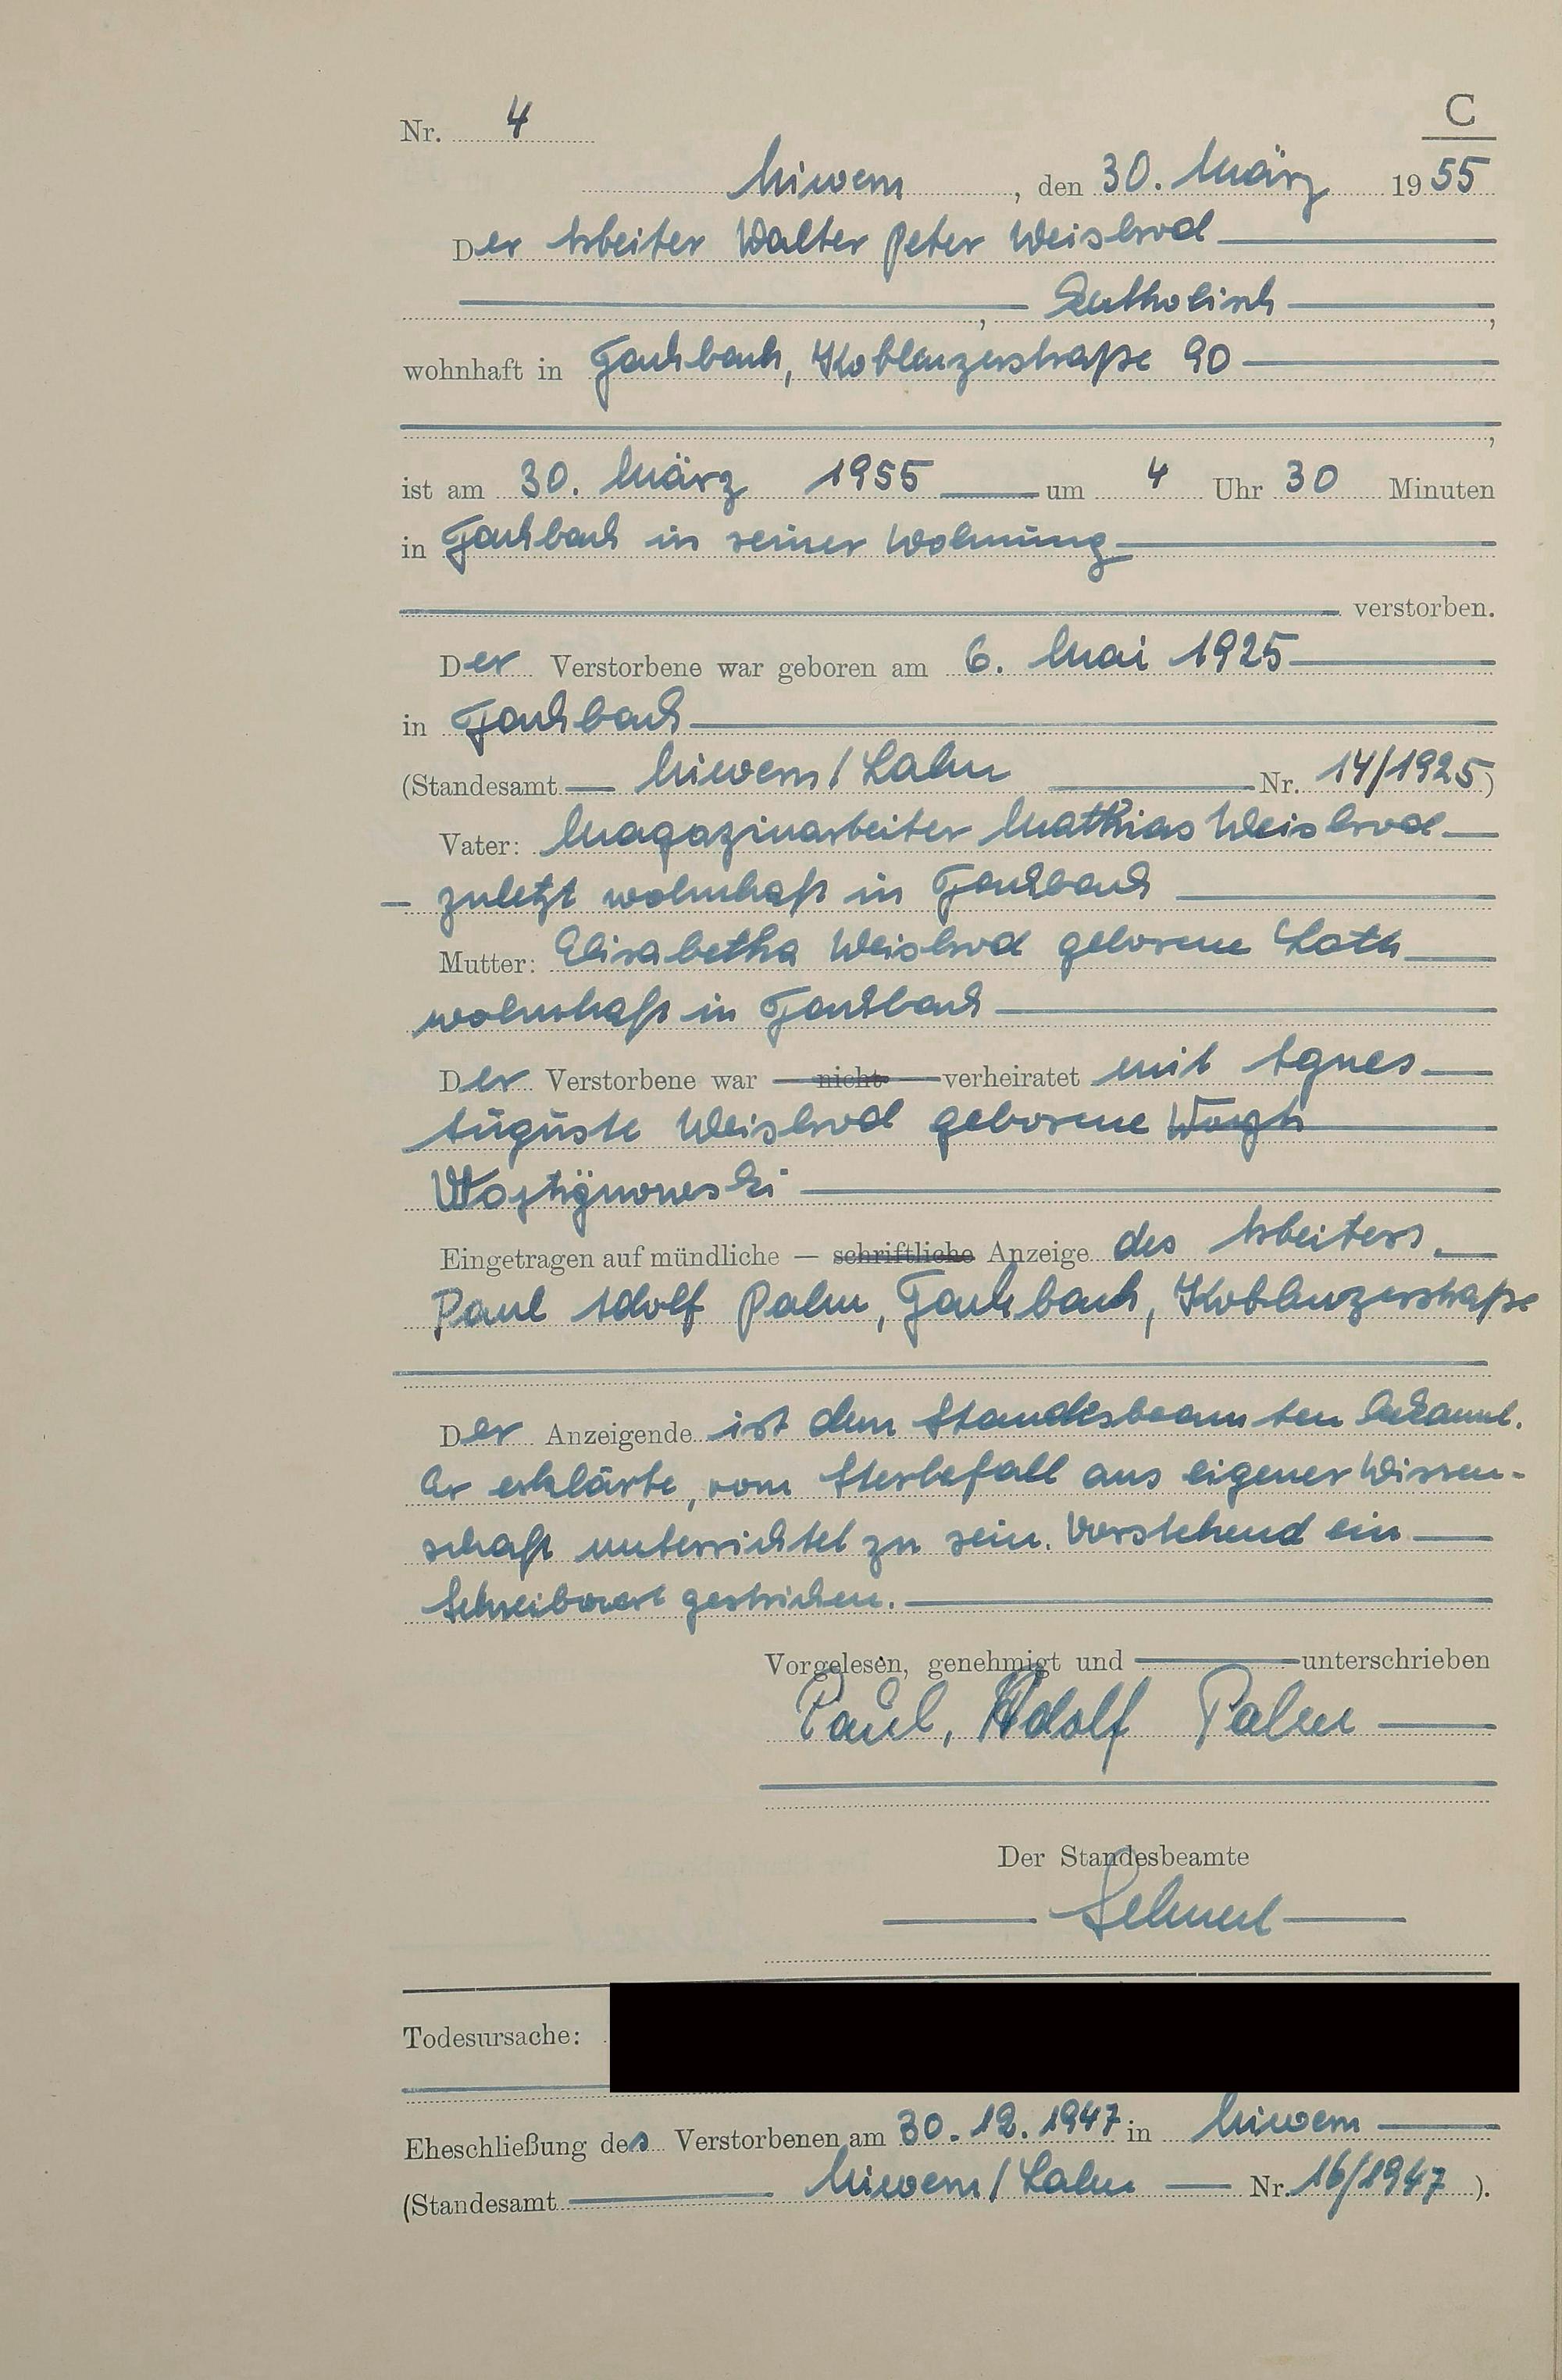 C
Nr. 4
Miwem, den 30. März 1955
Der Arbeiter Walter Peter Weisbrod
, Katholisch,
wohnhaft in Fachbach, Koblenzerstraße 90
,
ist am 30. März 1955 um 4 Uhr 30 Minuten
in Fachbach in seiner Wohnung
verstorben.
Der Verstorbene war geboren am 6. Mai 1925
in Fachbach
(Standesamt Miwem/Lahn Nr. 14/1925)
Vater: Magazinarbeiter Mathias Weisbrod
zuletzt wohnhaft in Fachbach
Mutter: Elisabetha Weisbrod geborene Loth
wohnhaft in Fachbach
Der Verstorbene war nicht verheiratet mit Agnes
Auguste Weisbrod geborene
Eingetragen auf mündliche — schriftliche Anzeige des Arbeiters
Paul Adolf Palm, Fachbach, Koblenzerstraße
Der Anzeigende ist dem Standesbeamten bekannt.
Er erklärte, vom Sterbefall aus eigener Wissen-
schaft unterrichtet zu sein. Vorstehend ein
Schreibwort gestrichen.
Vorgelesen, genehmigt und unterschrieben
Paul, Adolf Palm
Der Standesbeamte
Todesursache:
Eheschließung des Verstorbenen am 30.12.1947 in Miwem
(Standesamt Miwem/Lahn Nr. 16/1947).